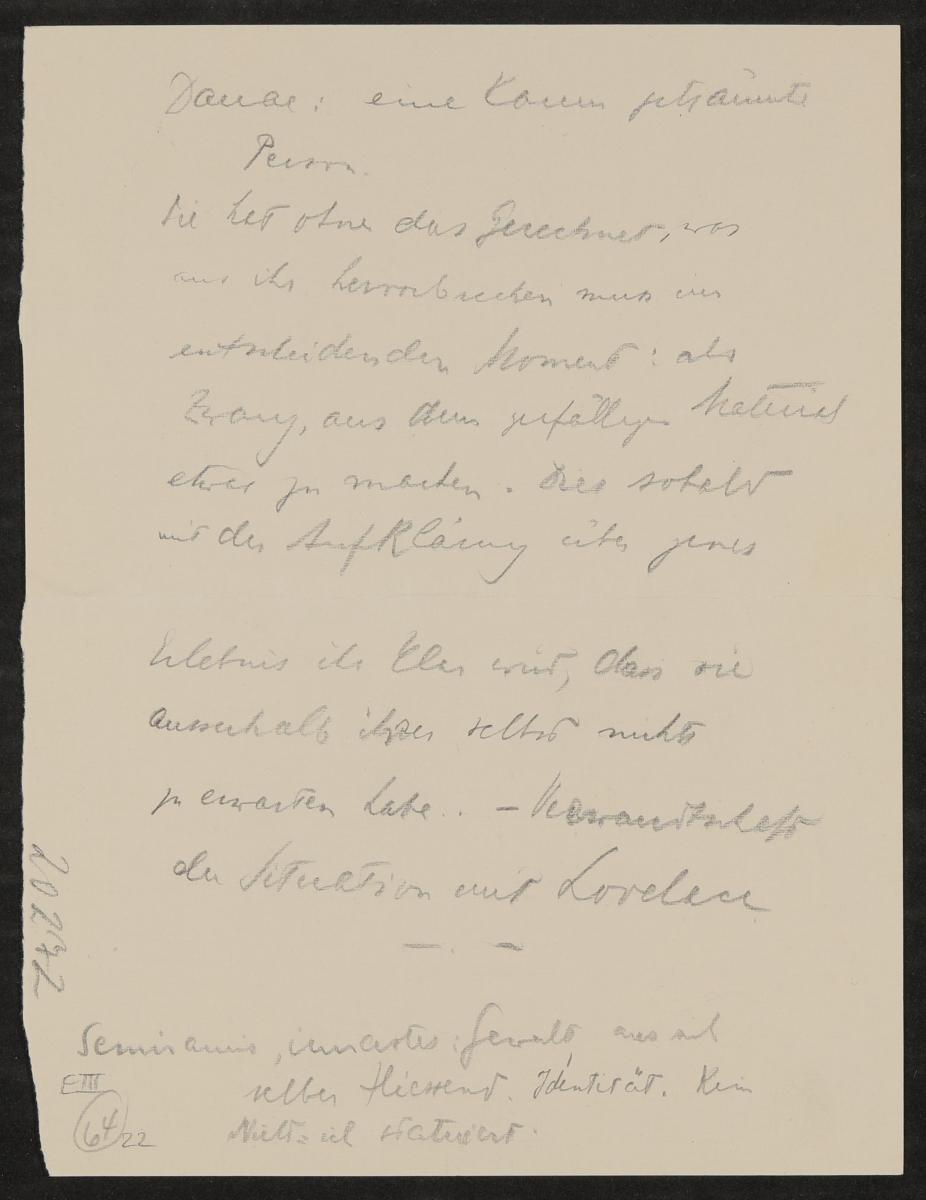 Danae: eine kaum gekrännte
Person.
Sie hat ohne das gerechnet, was
aus ihr hervorbrechen muss im
entscheidenden Moment: als
Zwang, aus dem zufälligen Material
etwas zu machen. Dies sobald
mit der Aufklärung über jenes
Erlebnis ihr klar wird, dass sie
ausserhalb ihrer selbst nichts
zu erwarten habe.. – Verwandtschaft
der Situation mit Lovelace
— . —
Semiramis, : Gewalt aus sich
selber fliessend. Identität. Kein
Nicht-ich statuiert.
E III
64 22
20242